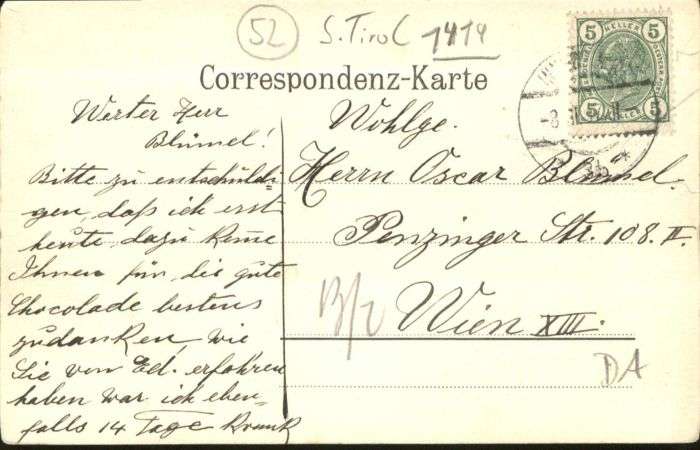 52 S. Tirol 1414
5 HELLER 5
5 HELLER 5
Correspondenz-Karte
Werter Herr
Blümel!
Bitte zu entschuldi-
gen, daß ich erst
heute dazu kome
Ihnen für die gute
Chocolade bestens
zudanken, wie
Sie von Ed. erfahren
haben war ich eben-
falls 14 Tage krank
Wohlge.
Herrn Oscar Blümel
Penzinger Str. 108. II.
Wien XIII.
B/Z
DA